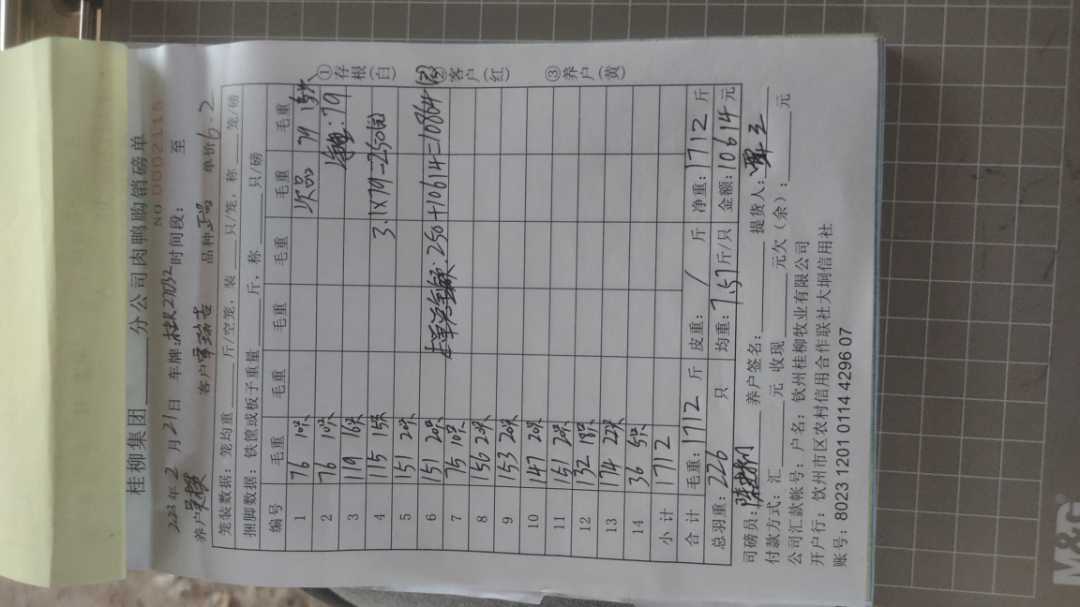 桂柳集团____分公司肉鸭购销磅单
NO 0002115
2023年2月21日 车牌: 时间段: 至
养户 客户 品种 单价6.2
笼装数据：笼均重____斤/空笼，装____只/笼，称____笼/磅
捆脚数据：铁镗或板子重量____斤，称____只/磅
编号 毛重 毛重 毛重 毛重 毛重 毛重
1 76 10只 次品 79 15只
2 76 10只 净重:79
3 119 16只
4 115 15只 3.1×79=250元
5 151 20只
6 151 20只 本单总金额:250+10614=10864元
7 75 10只
8 156 20只
9 153 20只
10 147 20只
11 151 20只
12 132 18只
13 174 22只
14 36 5只
小计 1712
合计 毛重:1712 斤 皮重: / 斤 净重:1712 斤
总羽重:226 只 均重:7.57斤/只 金额:10614元
①存根(白)
②客户(红)
③养户(黄)
司磅员: 养户签名:____ 提货人:
付款方式：汇____元 收现____元欠(余)：____元
公司汇款帐号：户名：钦州桂柳牧业有限公司
开户行：钦州市区农村信用合作联社大垌信用社
账号：8023 1201 0114 4296 07
M&G